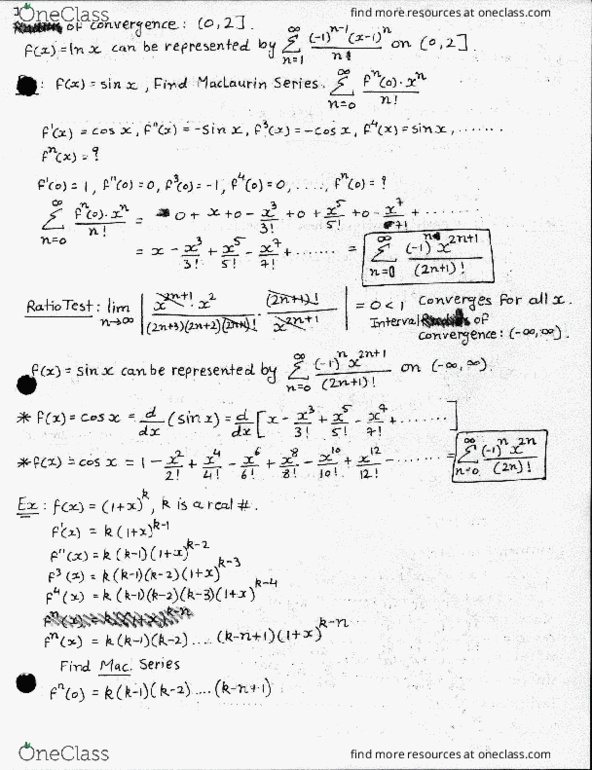 OneClass
find more resources at oneclass.com
of convergence: (0, 2].
f(x) = ln x can be represented by ∑_{n=1}^{∞} (-1)^{n-1}(x-1)^n / n! on (0, 2].
: f(x) = sin x, Find MacLaurin Series. ∑_{n=0}^{∞} f^n(0)·x^n / n!
f'(x) = cos x, f''(x) = -sin x, f^3(x) = -cos x, f^4(x) = sin x, .......
f^n(x) = ?
f'(0) = 1, f''(0) = 0, f^3(0) = -1, f^4(0) = 0, ...., f^n(0) = ?
∑_{n=0}^{∞} f^n(0)·x^n / n! = 0 + x + 0 - x^3/3! + 0 + x^5/5! + 0 - x^7/7! + .......
= x - x^3/3! + x^5/5! - x^7/7! + ....... = ∑_{n=0}^{∞} (-1)^n x^{2n+1} / (2n+1)!
Ratio Test: lim_{n→∞} | x^{2n+1}·x^2 / (2n+3)(2n+2)(2n+1)! · (2n+1)! / x^{2n+1} | = 0 < 1 Converges for all x.
Interval of convergence: (-∞, ∞).
f(x) = sin x can be represented by ∑_{n=0}^{∞} (-1)^n x^{2n+1} / (2n+1)! on (-∞, ∞).
* f(x) = cos x = d/dx (sin x) = d/dx [x - x^3/3! + x^5/5! - x^7/7! + ........]
* f(x) = cos x = 1 - x^2/2! + x^4/4! - x^6/6! + x^8/8! - x^10/10! + x^12/12! - ........ = ∑_{n=0}^{∞} (-1)^n x^{2n} / (2n)!
Ex: f(x) = (1+x)^k, k is a real #.
f'(x) = k(1+x)^{k-1}
f''(x) = k(k-1)(1+x)^{k-2}
f^3(x) = k(k-1)(k-2)(1+x)^{k-3}
f^4(x) = k(k-1)(k-2)(k-3)(1+x)^{k-4}
f^n(x) = k(k-1)(k-2)....(k-n+1)(1+x)^{k-n}
Find Mac. Series
f^n(0) = k(k-1)(k-2)....(k-n+1)
OneClass
find more resources at oneclass.com